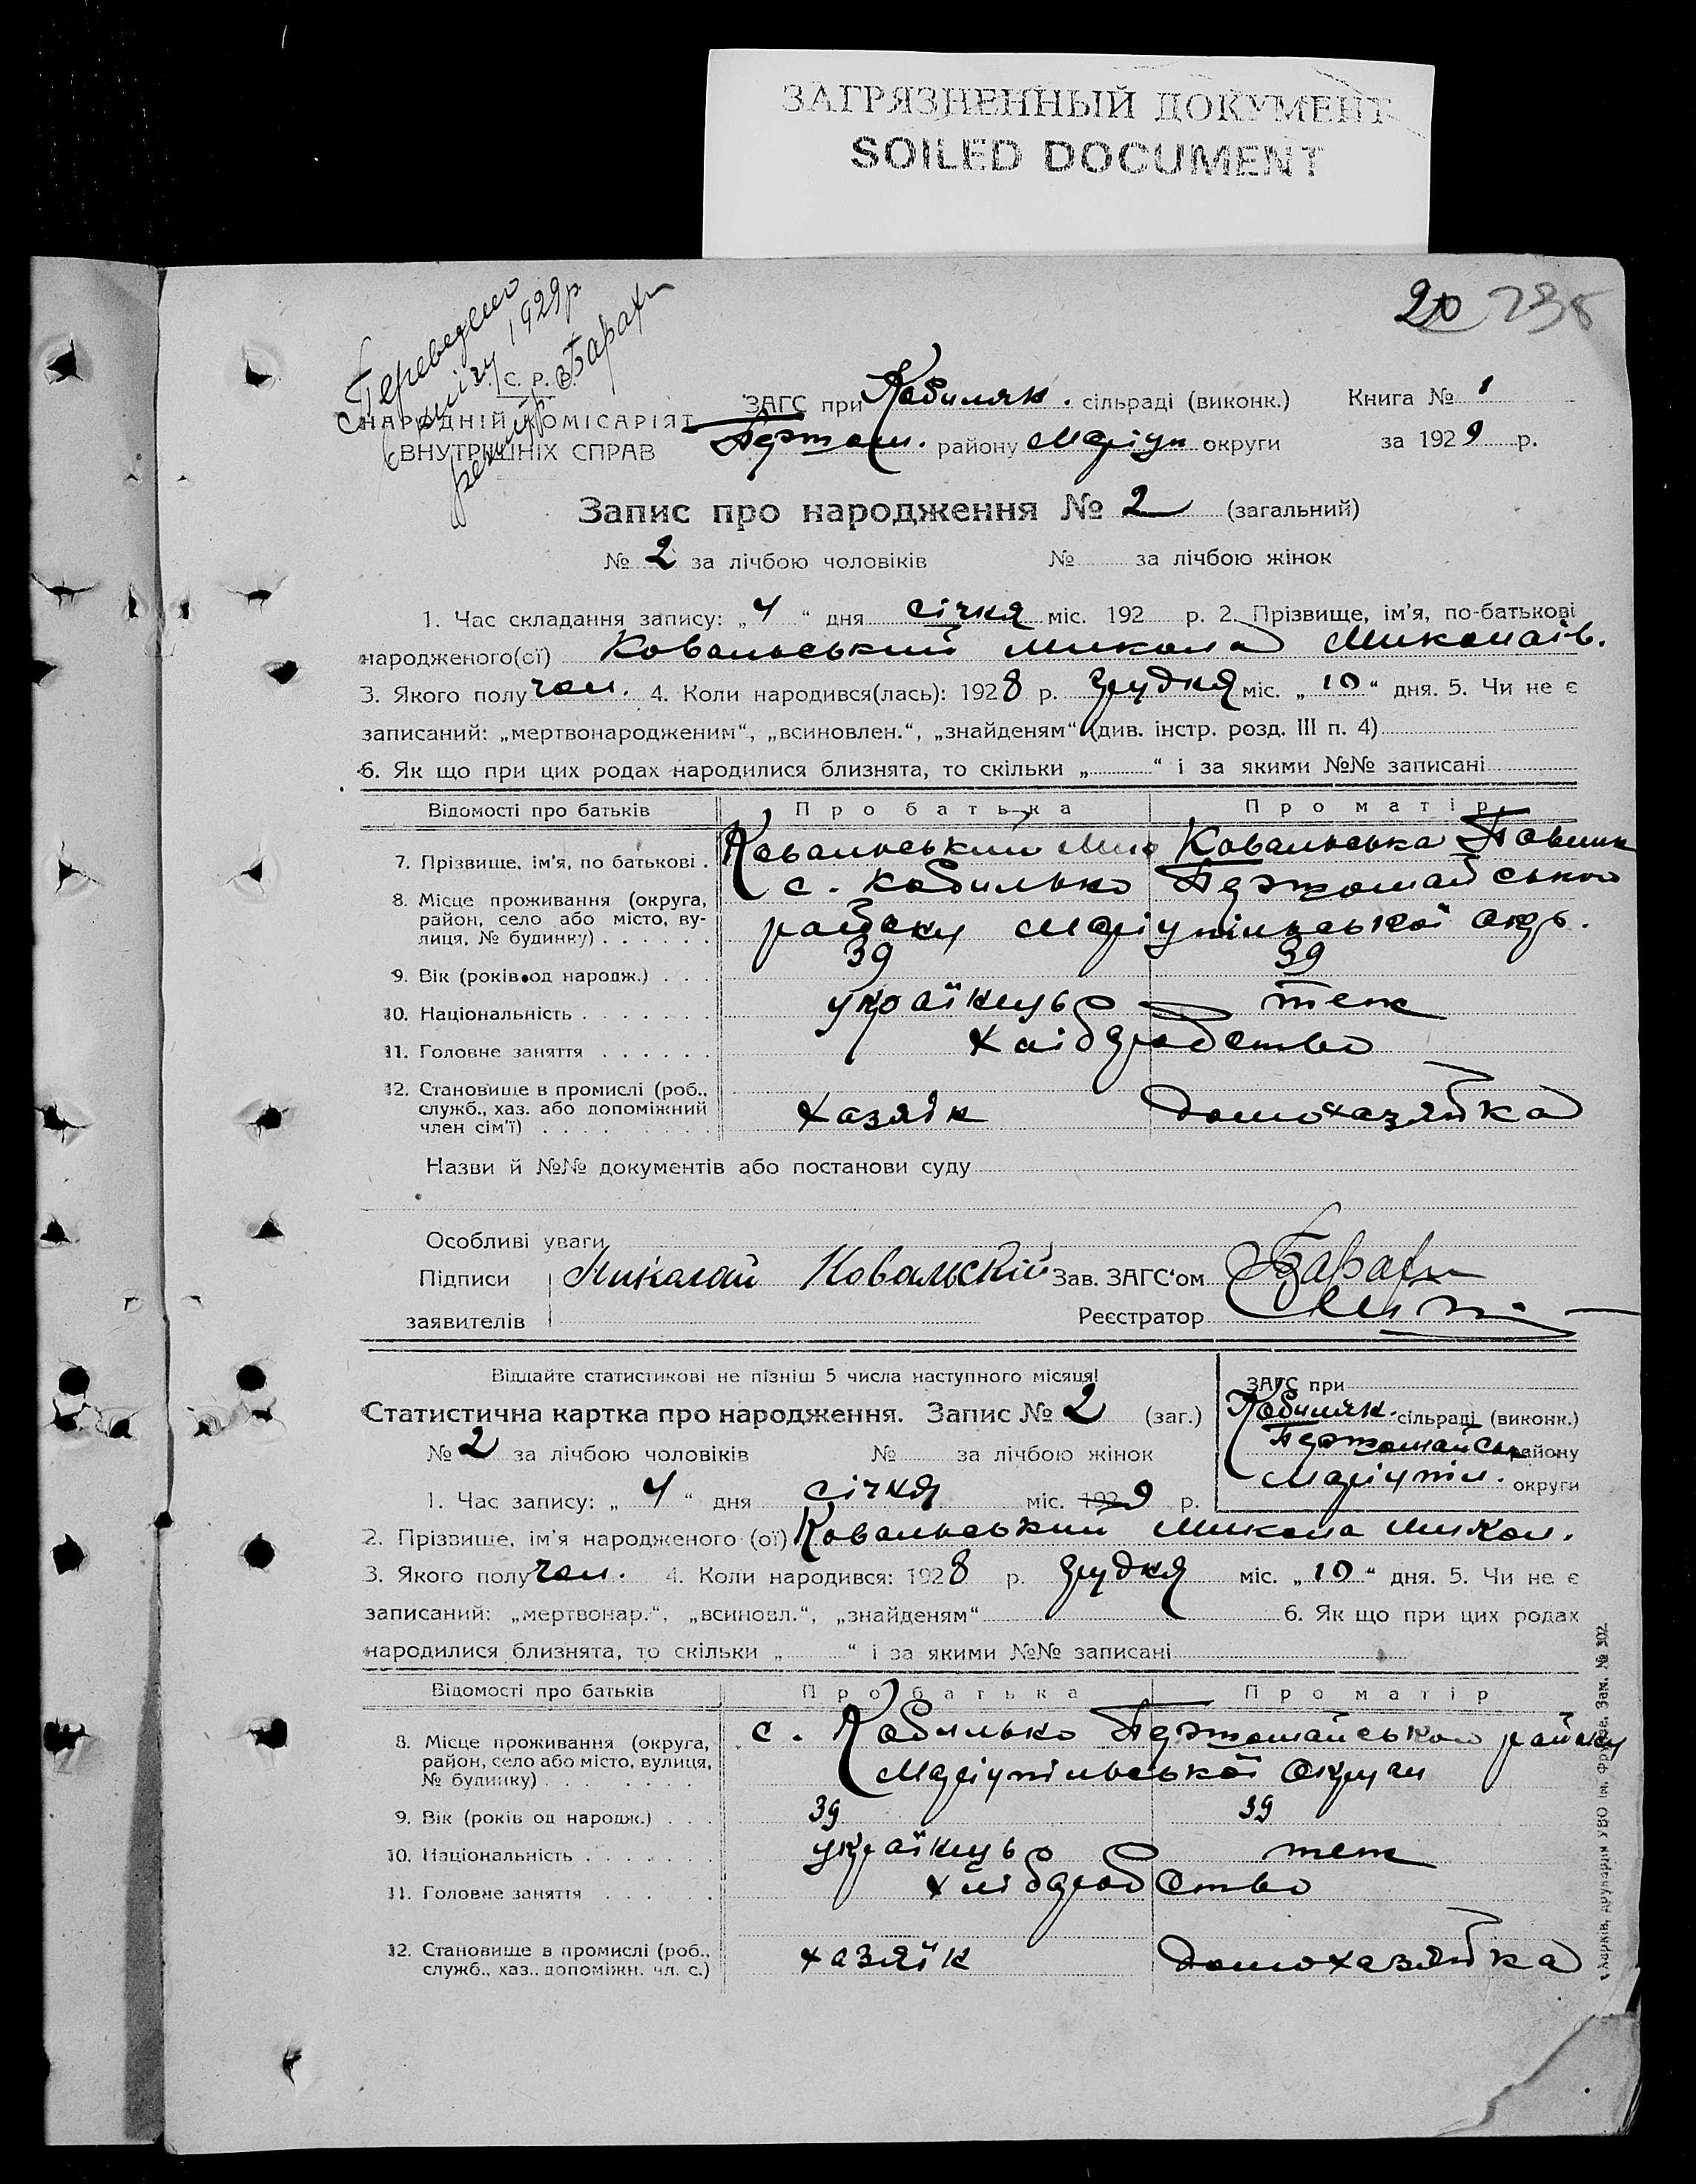 ЗАГРЯЗНЕННЫЙ ДОКУМЕНТ
SOILED DOCUMENT
20 238
Переведено
в книгу 1929р
Барах
С. Р. Р.
НАРОДНІЙ КОМІСАРІЯТ
ВНУТРІШНІХ СПРАВ
ЗАГС при Кобиляк. сільраді (виконк.) Книга № 1
Першом. району Маріуп округи за 1929 р.
Запис про народження № 2 (загальний)
№ 2 за лічбою чоловіків № за лічбою жінок
1. Час складання запису: „4“ дня січня міс. 192 р. 2. Прізвище, ім’я, по-батькові
народженого(ої) Ковальський Микола Миколаїв.
3. Якого полу чол. 4. Коли народився(лась): 1928 р. грудня міс. „10“ дня. 5. Чи не є
записаний: „мертвонародженим“, „всиновлен.“, „знайденям“ (див. інстр. розд. III п. 4)
6. Як що при цих родах народилися близнята, то скільки „ “ і за якими №№ записані
Відомості про батьків Про батька Про матір
7. Прізвище, ім’я, по батькові . Ковальський Ковальська
8. Місце проживання (округа, с. Кобилько Першомайського
район, село або місто, ву- району Маріупільської окр.
лиця, № будинку) . . . . . .
9. Вік (років од народж.) . . . 39 39
10. Національність . . . . . . . українець теж
11. Головне заняття . . . . . . хліборобство
12. Становище в промислі (роб.,
служб., хаз. або допоміжний хазяїн домохазяйка
член сім’ї) . . . . . . . . .
Назви й №№ документів або постанови суду
Особливі уваги
Підписи Николай Ковальский Зав. ЗАГС‘ом Барах
заявителів Реєстратор
Віддайте статистикові не пізніш 5 числа наступного місяця!
ЗАГС при
Статистична картка про народження. Запис № 2 (заг.) Кобиляк. сільраді (виконк.)
№ 2 за лічбою чоловіків № за лічбою жінок Першомайськ району
1. Час запису: „4“ дня січня міс. 1929 р. Маріупіл. округи
2. Прізвище, ім’я народженого (ої) Ковальський Микола Микол.
3. Якого полу чол. 4. Коли народився: 1928 р. грудня міс. „10“ дня. 5. Чи не є
записаний: „мертвонар.“, „всиновл.“, „знайденям“ 6. Як що при цих родах
народилися близнята, то скільки „ “ і за якими №№ записані
Відомості про батьків Про батька Про матір
8. Місце проживання (округа, с. Кобилько Першомайського району
район, село або місто, вулиця, Маріупільської округи
№ будинку) . . . . . .
9. Вік (років од народж.) . . . 39 39
10. Національність . . . . . . . українець теж
11. Головне заняття . . . . . . хліборобство
12. Становище в промислі (роб., хазяїн домохазяйка
служб., хаз., допоміжн. чл. с.)
Харків, друкарня УВО ім. Фрунзе. Зам. № 302